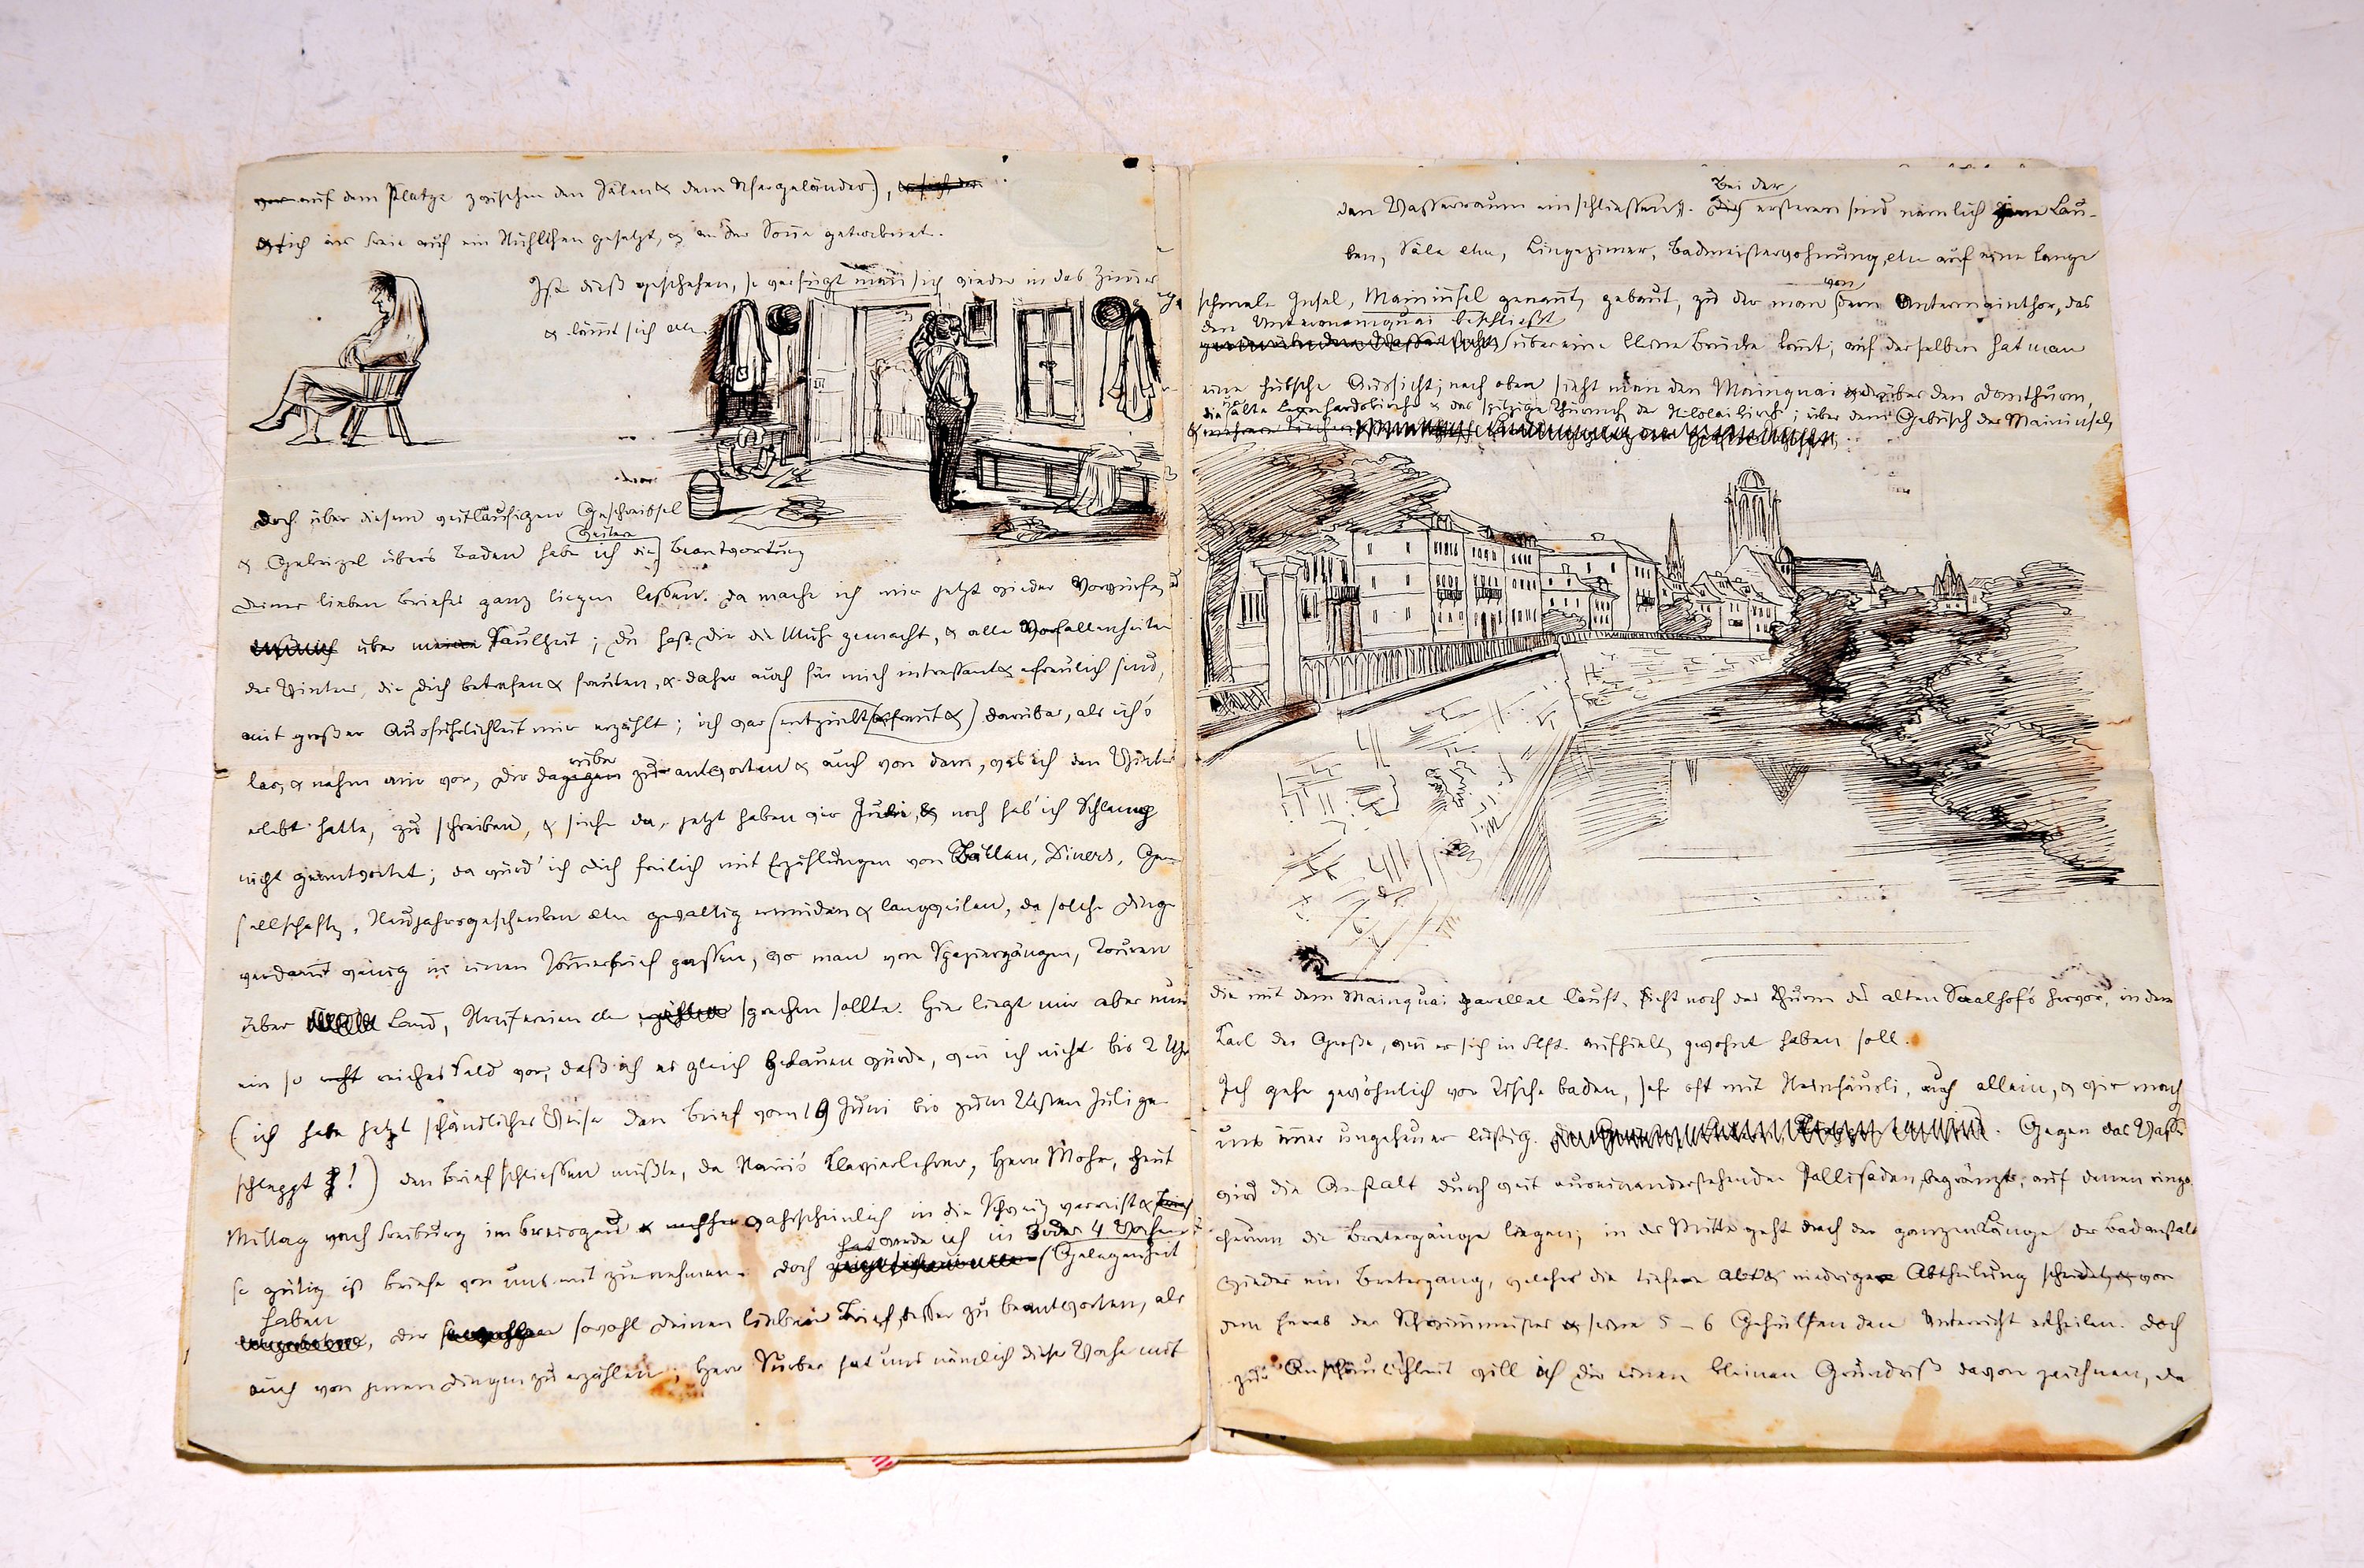 auf dem Platze zwischen den Sälen & dem Ufergeländer),
sich ins Freie auf ein Stühlchen gesetzt, & an der Sonne getrocknet.
Ist dieß geschehen, so verfügt man sich wieder in das Zimmer
& kämt sich etc.
Doch über diesem weitläufigen Geschreibsel
& Gekrizel über's Baden habe ich die Beantwortung
Deines lieben Briefes ganz liegen lassen. Da mache ich mir jetzt wieder Vorwürfe
über meine Faulheit; Du hast Dir die Mühe gemacht, & alle Vorfallenheiten
des Winters, die Dich betrafen & freuten, & daher auch für mich intressant & erfreulich sind,
mit großer Ausführlichkeit mir erzählt; ich war entzückt & erfreut darüber, als ich's
las, & nahm mir vor, Dir darüber zu antworten & auch von dem, was ich den Winter
erlebt hatte, zu schreiben, & siehe da, jetzt haben wir Juli, & noch hab' ich Schlaung
nicht geantwortet; da würd' ich Dich freilich mit Erzählungen von Bällen, Diners, Ge-
sellschaften, Neujahrsgeschenken etc gewaltig ermüden & langweilen, da solche Dinge
verdammt wenig in einen Sommerbrief passen, wo man von Spaziergängen, Touren
über Land, etc sprechen sollte. Hier liegt mir aber nun
ein so reiches Feld vor, daß ich es gleich bebauen würde, wenn ich nicht bis 2 Uhr
(ich habe jetzt schändlicher Weise den Brief vom 19 Juni bis zum Juli ge-
schleppt!) den Brief schliessen müßte, da Klavierlehrer, Herr Mohr, heut
Mittag nach Freiburg im Breisgau & wahrscheinlich in die Schweiz verreist &
so gütig ist Briefe von uns mitzunehmen. Doch werde ich in 3 oder 4 Wochen Gelegenheit
haben, Dir sowohl Deinen lieben Brief besser zu beantworten, als
auch von jenen Dingen zu erzählen; Herr hat uns nämlich diese Woche mit
Bei der
den Wasserraum einschliessen. ersteren sind nämlich jene Lau-
ben, Säle etc, Badmeisterwohnung, etc auf eine lange
schmale Insel, Maininsel genannt, gebaut, zu der man von dem Untermainthor, das
den Untermainquai beschließt
über eine kleine Brücke kömt; auf derselben hat man
eine hübsche Aussicht; nach oben sieht man den Mainquai & darüber den Domthurm,
die alte Leonhardskirche & das spitzige Thürmch der Nikolaikirche; über dem Gebüsch der Maininsel,
die mit dem Mainquai parallel läuft, sieht noch der Thurm des alten Saalhofs hervor, in dem
Karl der Große, wenn er sich in Fkft. aufhielt, gewohnt haben soll.
Ich gehe gewöhnlich vor Tische baden, sehr oft mit auch allein, & wir mach
uns immer ungeheuer lustig. Gegen das Wasser
wird die Anstalt durch weit auseinanderstehende Pallisaden begränzt, auf denen rings-
herum die Brettergänge liegen; in der Mitte geht durch die ganze Länge der Badanstalt
wieder ein Brettergang, welcher die tiefere niedrigere Abtheilung scheidet, & von
dem herab der Schwimmeister & seine 5–6 Gehülfen den Unterricht ertheilen. Doch
zur Anschaulichkeit will ich Dir einen kleinen Grundriß davon zeichnen, da